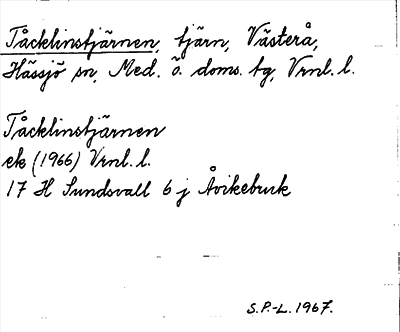 Tåcklinstjärnen, tjärn, Västerå,
Hässjö sn, Med. ö. doms. tg, Vrnl. l.
Tåcklinstjärnen
ek (1966) Vrnl. l.
17 H Sundsvall 6 j Åvikebruk
S.P.-L. 1967.